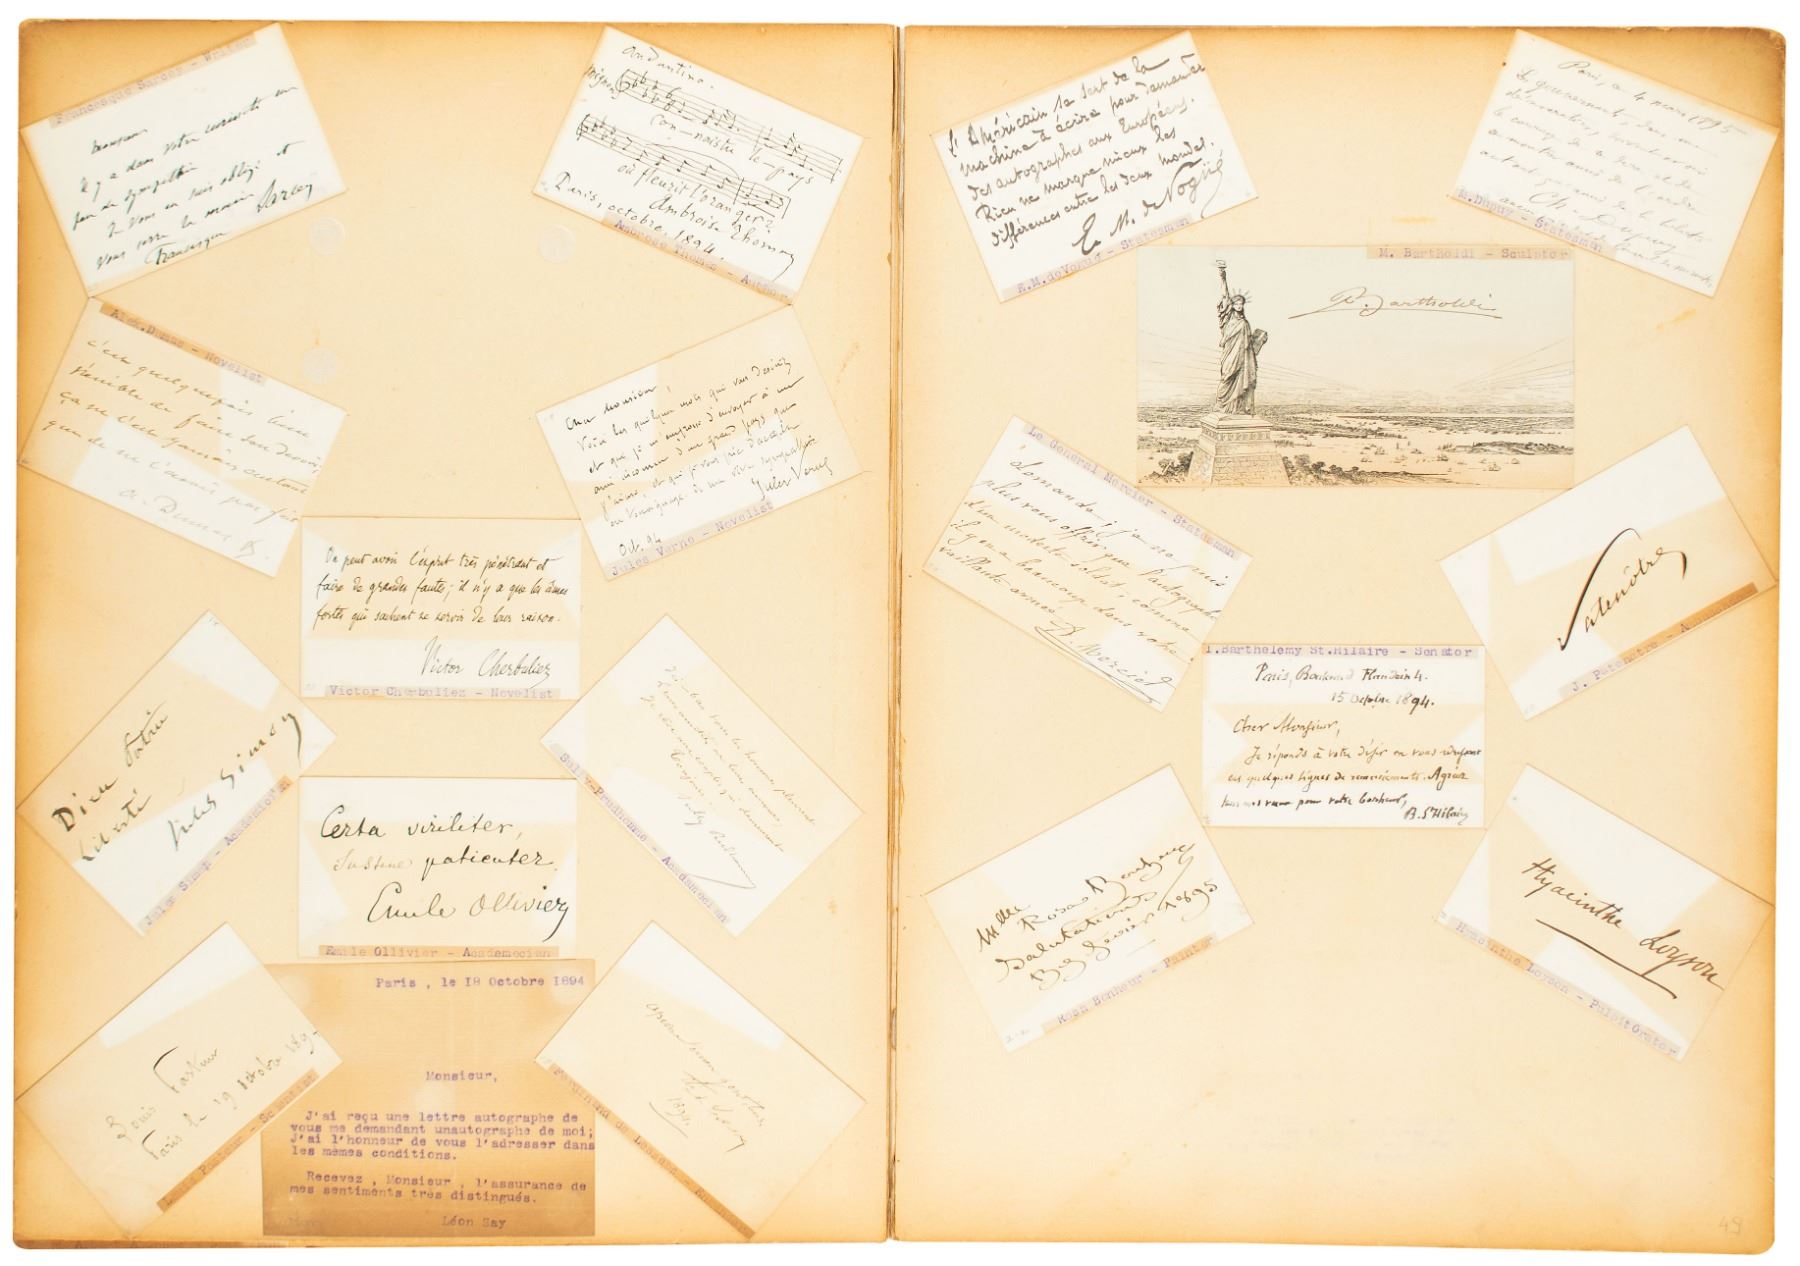 Francesque Sarcey - Writer
Monsieur
Il y a dans votre curiosité un
peu de sympathie
Je vous en suis obligé et
vous serre la main
Francisque Sarcey
andantino.
Mignon
con-naistu le pays
où fleurit l'oranger?
Ambroise Thomas
Paris, octobre 1894.
Ambrose Thomas - Author
Alex.Dumas - Novelist
c'est quelquefois bien
pénible de faire son devoir,
ça ne l'est jamais autant
que de ne l'avoir pas fait
A. Dumas f.
Cher Monsieur,
Voici les quelques mots que vous desirez
et que je m'empresse d'envoyer à un
ami inconnu d'un grand pays que
j'aime, et qui je vous prie d'accepter
en témoignage de ma vive sympathie
Jules Verne
Oct. 94
Jules Verne - Novelist
On peut avoir l'esprit très pénétrant et
faire de grandes fautes; il n'y a que les âmes
fortes qui sachent se servir de leur raison.
Victor Cherbuliez
Victor Cherbuliez - Novelist
Dieu Patrie
Liberté
Jules Simon
Jules Simon - Academician
Certa viriliter,
Sustine patienter.
Emile Ollivier
Emile Ollivier - Academecian
Ici bas tous les hommes pleurent
Leurs amitiés ou leurs amours;
Je rêve aux couples qui demeurent
Toujours
Sully Prudhomme
Sully-Prudhomme - Academecian
Louis Pasteur
Paris le 19 octobre 189
Louis Pasteur - Scientist
Paris , le 18 Octobre 1894
Monsieur,
J'ai reçu une lettre autographe de
vous me demandant unautographe de moi;
J'ai l'honneur de vous l'adresser dans
les mêmes conditions.
Recevez , Monsieur , l'assurance de
mes sentiments très distingués.
Léon Say
1894.
Ferdinand de Lesseps
L'Américain se sert de la
machine à écrire pour demander
des autographes aux Européens.
Rien ne marque mieux les
différences entre les deux mondes.
E. M. de Vogüé
E.M.deVogüé - Statesman
Paris, 4 mars 1895
Ch. Dupuy
M.Dupuy - Statesman
M. Bartholdi - Sculptor
A. Bartholdi
Le General Mercier - Statesman
demande; je ne puis
plus vous offrir que l'autographe
d'un modeste soldat, comme
il y en a beaucoup dans notre
vaillante armée.
A. Mercier
Patenôtre
J. Patenotre - A
T.Barthelemy St.Hilaire - Senator
Paris, Boulevard Flandrin 4.
15 Octobre 1894.
Cher Monsieur,
Je réponds à votre désir en vous adressant
ces quelques lignes de remerciements. Agréez
tous mes vœux pour votre bonheur,
B. St Hilaire
Mlle
Rosa Bonheur
Salutations
By Février 1895
Rosa Bonheur - Painter
Hyacinthe Loyson
Hyacinthe Loyson - Pulpit Orator
49